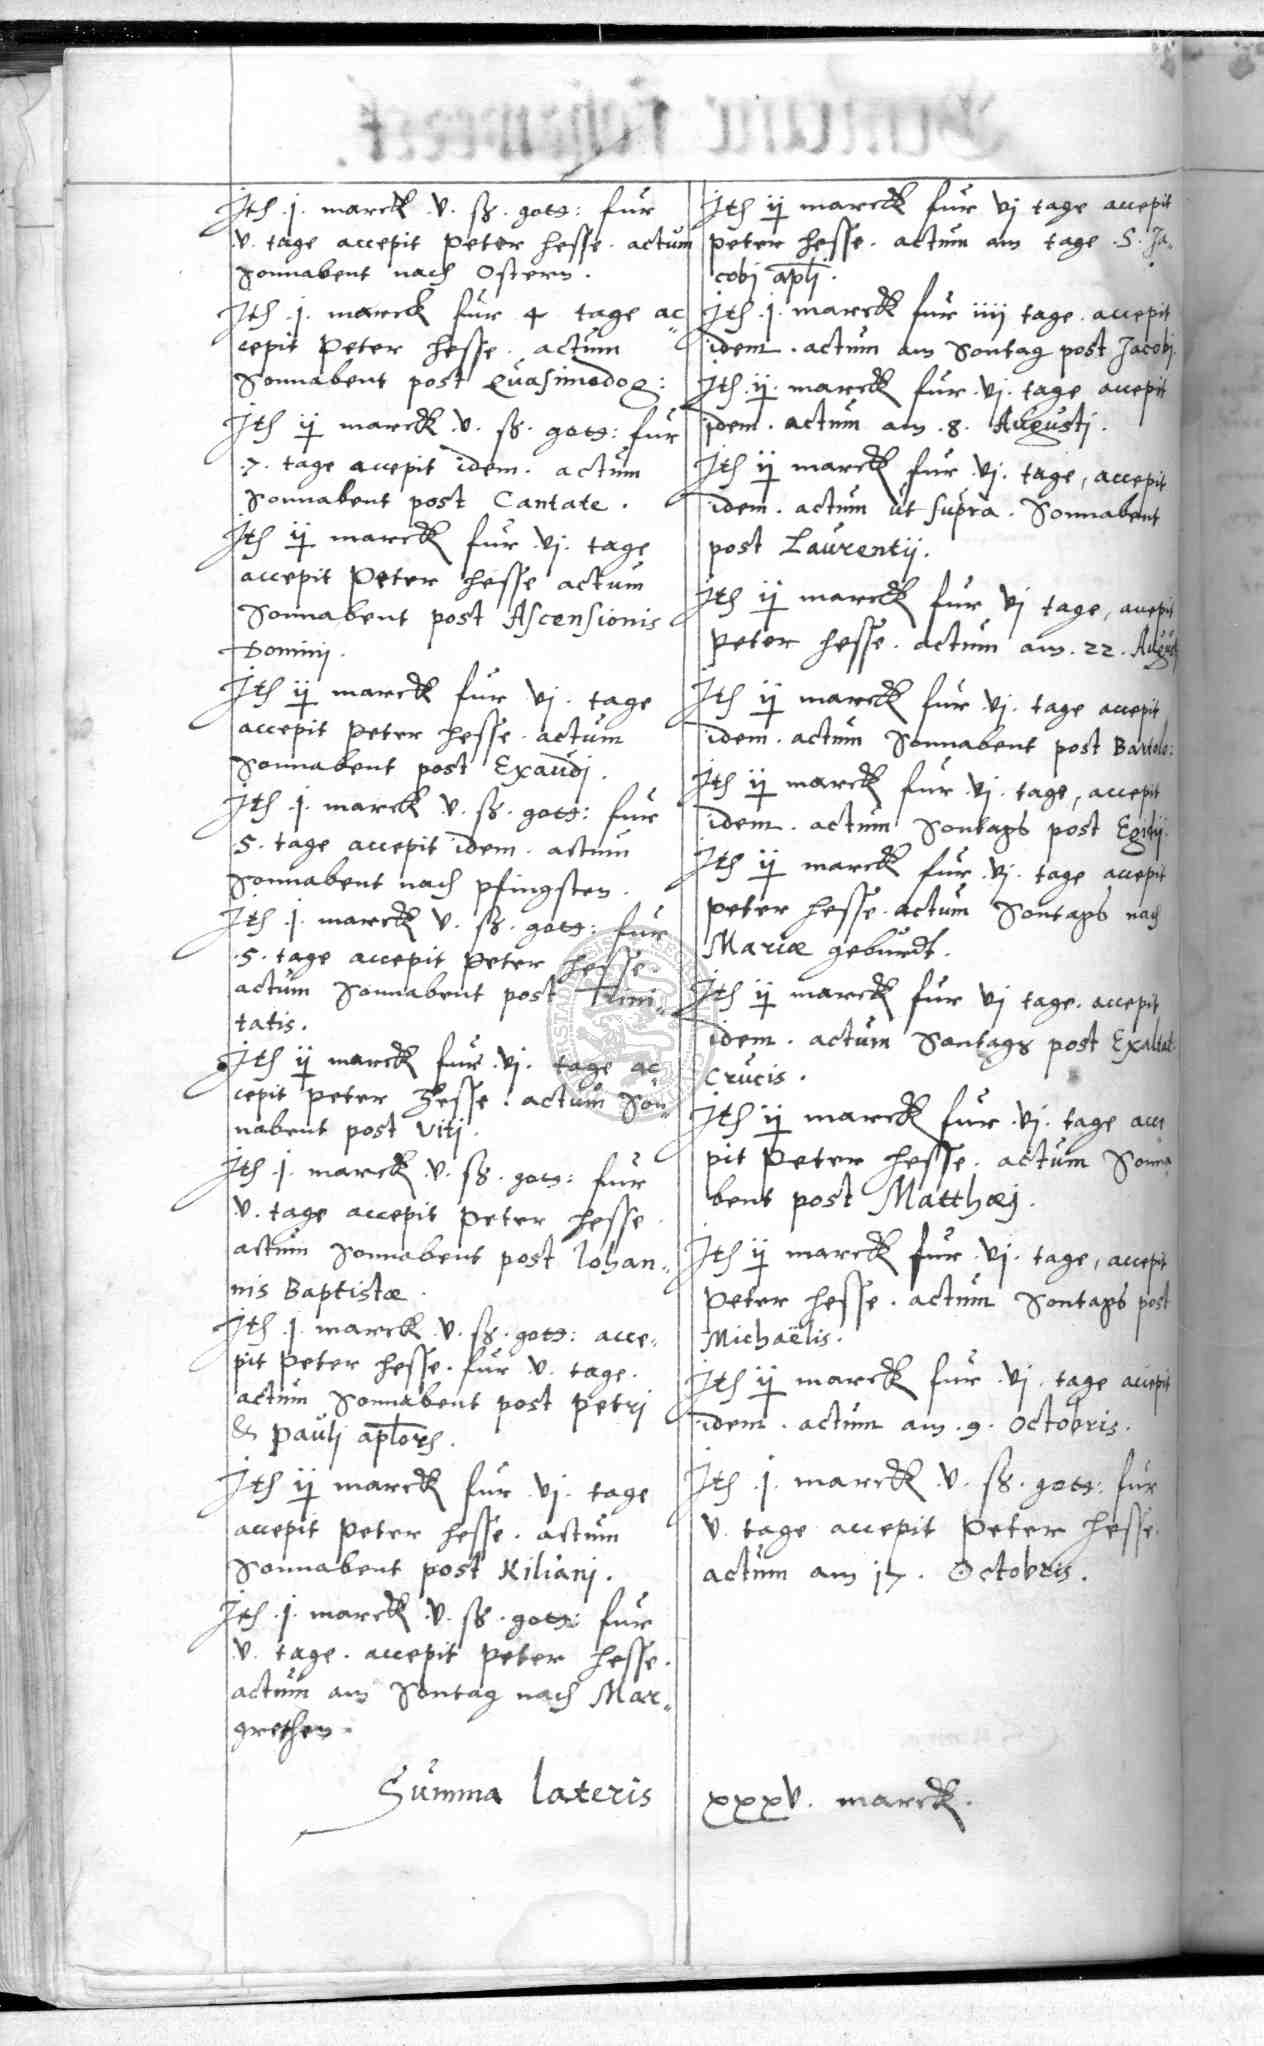 Ith .j. marck .v. ß. gotz: fur
.v. tage accepit Peter Hesse. actum
Sonnabent nach Ostern.
Ith .j. marck fur 4 tage ac„
cepit Peter Hesse. actum
Sonnabent post Quasimodog:
Ith ij marck .v. ß. gotz: fur
.7. tage accepit idem. actum
Sonnabent post Cantate.
Ith ij marck fur .vj. tage
accepit Peter Hesse actum
Sonnabent post Ascensionis
Dominj.
Ith ij marck fur vj. tage
accepit Peter Hesse. actum
Sonnabent post Exaudj.
Ith .j. marck .v. ß. gotz: fur
5. tage accepit idem. actum
Sonnabent nach Pfingsten.
Ith .j. marck v. ß. gotz: fur
.5. tage accepit Peter Hesse.
actum Sonnabent post Trini„
tatis.
Ith ij marck fur .vj. tage ac„
cepit Peter Hesse. actum Son„
nabent post Vitj.
Ith .j. marck .v. ß. gotz: fur
v. tage accepit Peter Hesse.
actum Sonnabent post Johan„
nis Baptistæ.
Ith .j. marck .v. ß. gotz: acce„
pit Peter Hesse. fur .v. tage.
actum Sonnabent post Petrj
& Paulj aplorum.
Ith ij marck fur .vj. tage
accepit Peter Hesse. actum
Sonnabent post Kilianj.
Ith .j. marck .v. ß. gotz: fur
.v. tage. accepit Peter Hesse.
actum am Sontag nach Mar„
grethen.
Summa lateris
Ith ij marck fur vj tage accepit
Peter Hesse. actum am tage .S. Ja„
cobj aplj.
Ith .j. marck fur iiij tage. accepit
idem. actum am Sontag post Jacobj.
Ith .ij. marck fur .vj. tage accepit
idem. actum am .8. Augustj.
Ith ij marck fur .vj. tage, accepit
idem. actum ut supra. Sonnabent
post Laurentij.
Ith ij marck fur vj tage, accepit
Peter Hesse. actum am .22. Augustj
Ith ij marck fur .vj. tage accepit
idem. actum Sonnabent post Bartolo:
Ith ij marck fur .vj. tage, accepit
idem. actum Sontags post Egidij.
Ith ij marck fur .vj. tage accepit
Peter Hesse. actum Sontags nach
Mariæ geburdt.
Ith ij marck fur vj tage. accepit
idem. actum Sontags post Exaltat
Crucis.
Ith ij marck fur .vj. tage acce„
pit Peter Hesse. actum Sonna„
bent post Matthæj.
Ith ij marck fur .vj. tage, accepit
Peter Hesse. actum Sontags post
Michaëlis.
Ith ij marck fur .vj. tage accepit
idem. actum am .9. Octobris.
Ith .j. marck .v. ß. gotz: fur
v. tage accepit Peter Hesse.
actum am 17. Octobris.
xxxv. marck.